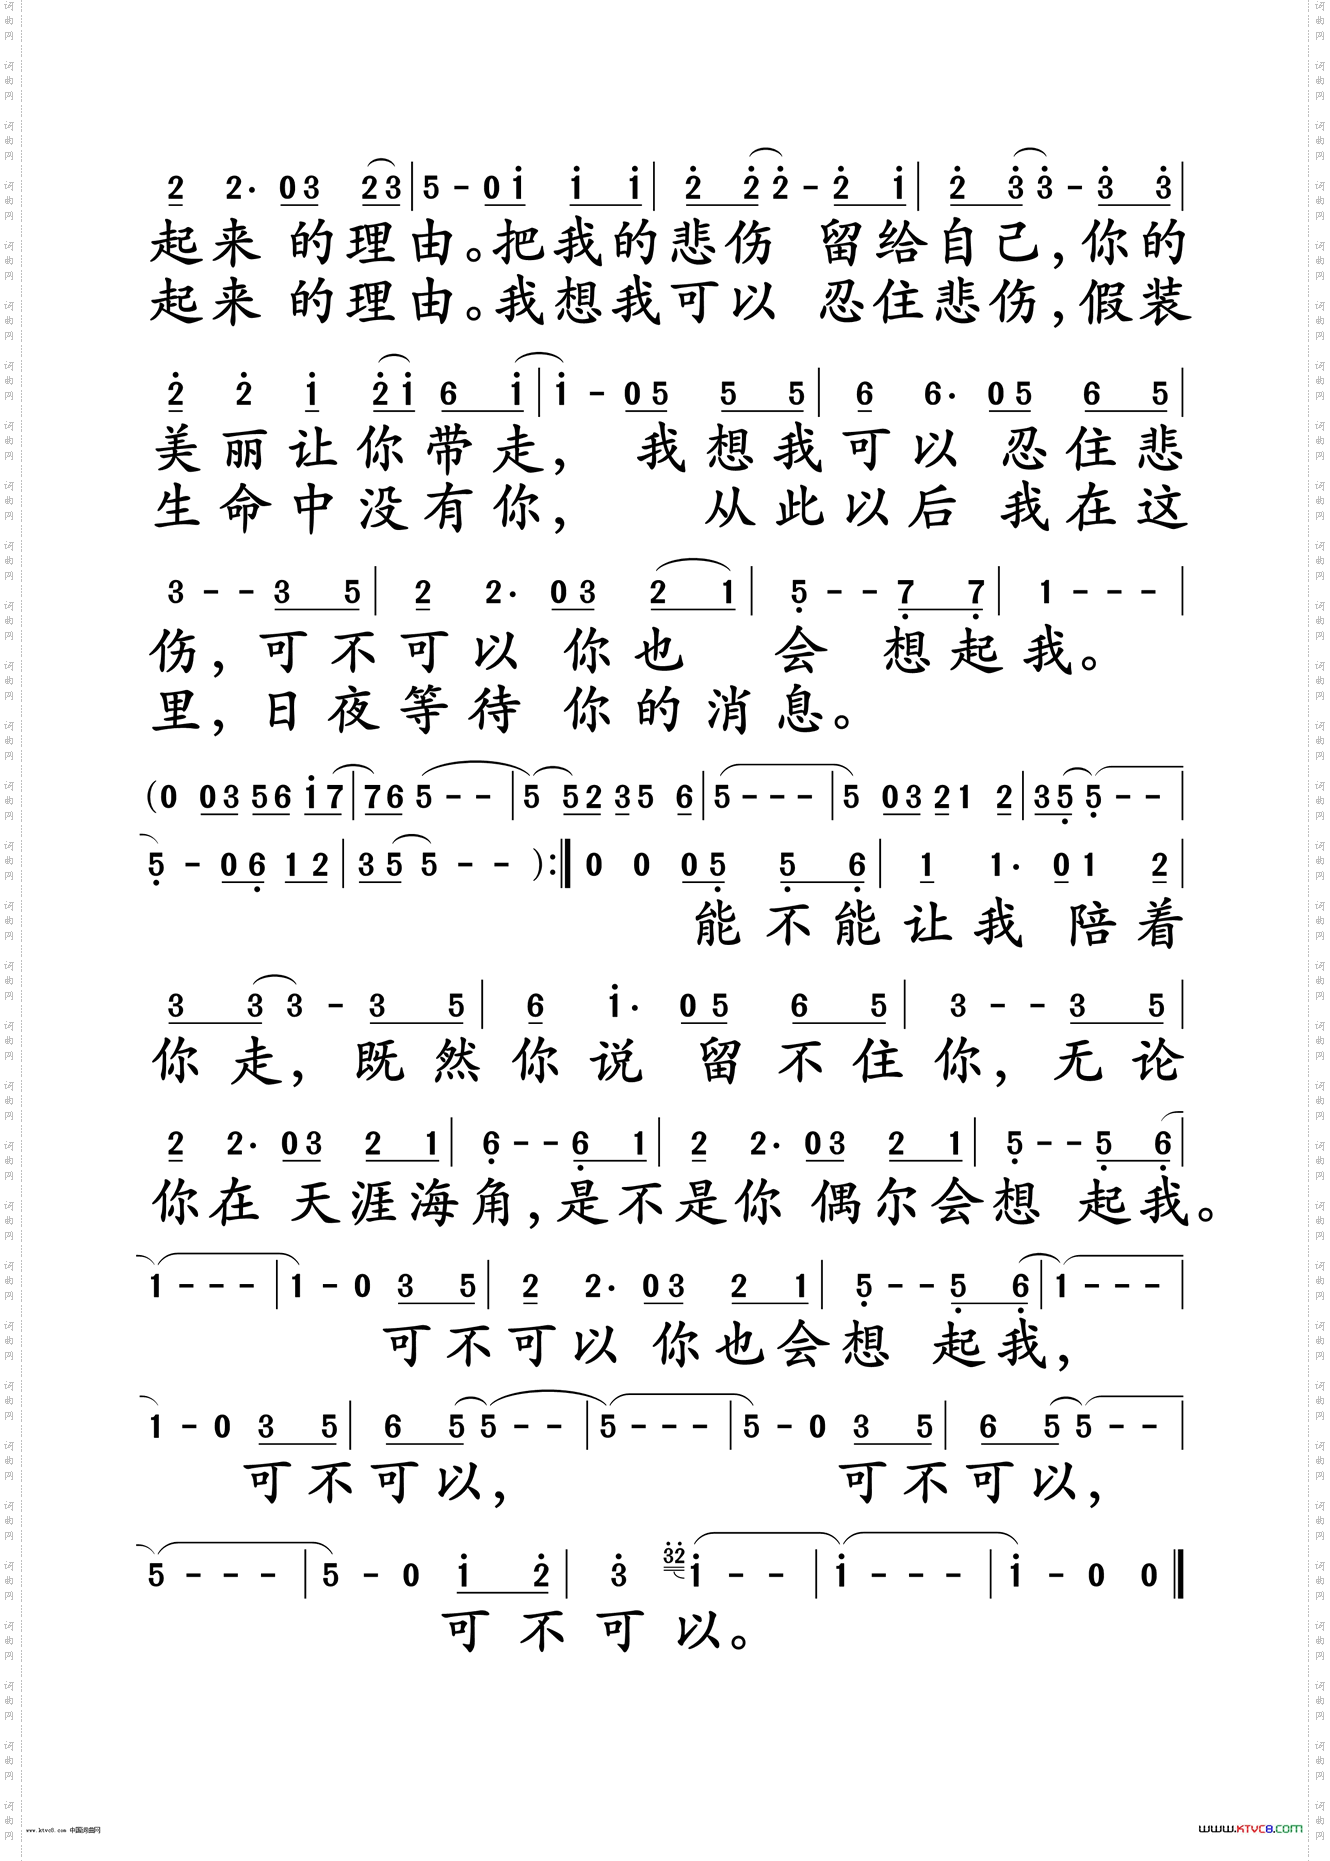 2 2. 03 23 | 5 - 01̇ 1̇ 1̇ | 2̇ 2̇2̇ - 2̇ 1̇ | 2̇ 3̇3̇ - 3̇ 3̇ |
起来 的理由。把我的悲伤 留给自己,你的
起来 的理由。我想我可以 忍住悲伤,假装
2̇ 2̇ 1̇ 2̇1̇ 6 1̇ | 1̇ - 05 5 5 | 6 6. 05 6 5 |
美丽让你带走, 我想我可以 忍住悲
生命中没有你, 从此以后 我在这
3 - - 3 5 | 2 2. 03 2 1 | 5̣ - - 7̣ 7̣ | 1 - - - |
伤,可不可以 你也 会 想起我。
里,日夜等待 你的消息。
(0 03 56 1̇7 | 76 5 - - | 5 52 35 6 | 5 - - - | 5 03 21 2 | 35̣ 5̣ - - |
5̣ - 06̣ 12 | 35 5 - - ):‖ 0 0 05̣ 5̣ 6̣ | 1 1. 01 2 |
能不能让我 陪着
3 3 3 - 3 5 | 6 1̇. 05 6 5 | 3 - - 3 5 |
你走,既然你说 留不住你,无论
2 2. 03 2 1 | 6̣ - - 6̣ 1 | 2 2. 03 2 1 | 5̣ - - 5̣ 6̣ |
你在 天涯海角,是不是你 偶尔会想 起我。
1 - - - | 1 - 0 3 5 | 2 2. 03 2 1 | 5̣ - - 5̣ 6̣ | 1 - - - |
可不可以 你也会想 起我,
1 - 0 3 5 | 6 5 5 - - | 5 - - - | 5 - 0 3 5 | 6 5 5 - - |
可不可以, 可不可以,
5 - - - | 5 - 0 1̇ 2̇ | 3̇ 3̇2̇ 1̇ - - | 1̇ - - - | 1̇ - 0 0 ‖
可不可以。
www.ktvc8.com 中国词曲网
www.KTVC8.com